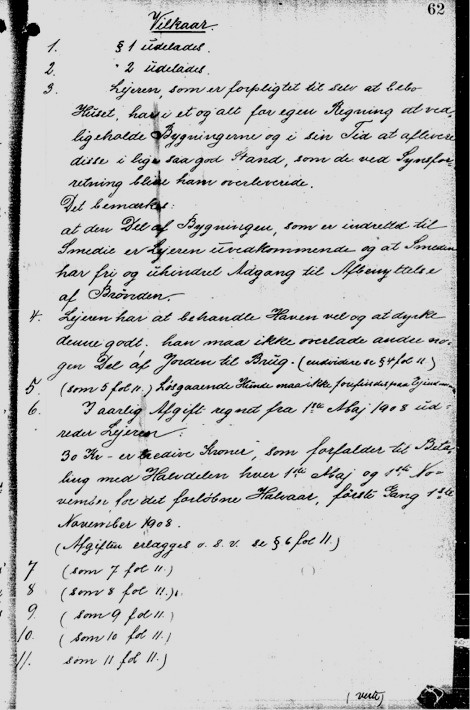 62
Vilkaar.
1. § 1 udelades.
2. " 2 udelades.
3. Lejeren, som er forpligtet til selv at bebo
Huset, har i et og alt for egen Regning at ved-
ligeholde Bygningerne og i sin Tid at aflevere
disse i lige saa god Stand, som de ved Synsfor-
retning bleve ham overleverede.
Det bemærkes:
at den Del af Bygningen, som er indrettet til
Smedie er Lejeren uvedkommende og at Smeden
har fri og uhindret Adgang til Afbenyttelse
af Brønden.
4. Lejeren har at behandle Haven vel og at dyrke
denne godt. han maa ikke overlade andre no-
gen Del af Jorden til Brug. (endvidere se § 4 fol 11)
5. (som 5 fol 11.) Løsgaaende Hunde maa ikke forefindes paa
6. I aarlig Afgift regnet fra 1ste Maj 1908 ud-
reder Lejeren
30 Kr - er tredive Kroner, som forfalder til Beta-
ling med Halvdelen hver 1ste Maj og 1ste No-
vember for det forløbne Halvaar, første Gang 1ste
November 1908.
(Afgiften erlægges o. s. v. se § 6 fol 11.)
7 (som 7 fol 11.)
8 (som 8 fol 11.)
9. (som 9 fol 11.)
10. (som 10 fol 11.)
11. som 11 fol 11.)
(verte)